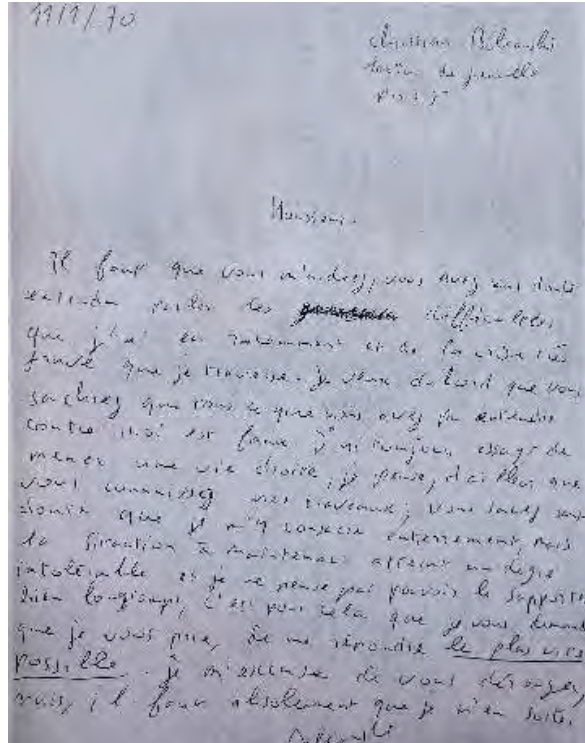 11/1/70
Christian Boltanski
Paris 7e
Monsieur.
Il faut que vous m'aidiez, vous avez sans doute
entendu parler des difficultés
que j'ai eu récemment et de la crise très
grave que je traverse. Je veux d'abord que vous
sachiez que tout ce que vous avez pu entendre
contre moi est faux. J'ai toujours essayé de
mener une vie droite, je pense, d'ailleurs que
vous connaissez mes travaux; vous savez sans
doute que je m'y consacre entièrement, mais
la situation a maintenant atteint un degré
intolérable et je ne pense pas pouvoir le supporter
bien longtemps, c'est pour cela que je vous demande
que je vous prie, de me répondre le plus vite
possible. Je m'excuse de vous déranger,
mais il faut absolument que je m'en sorte.